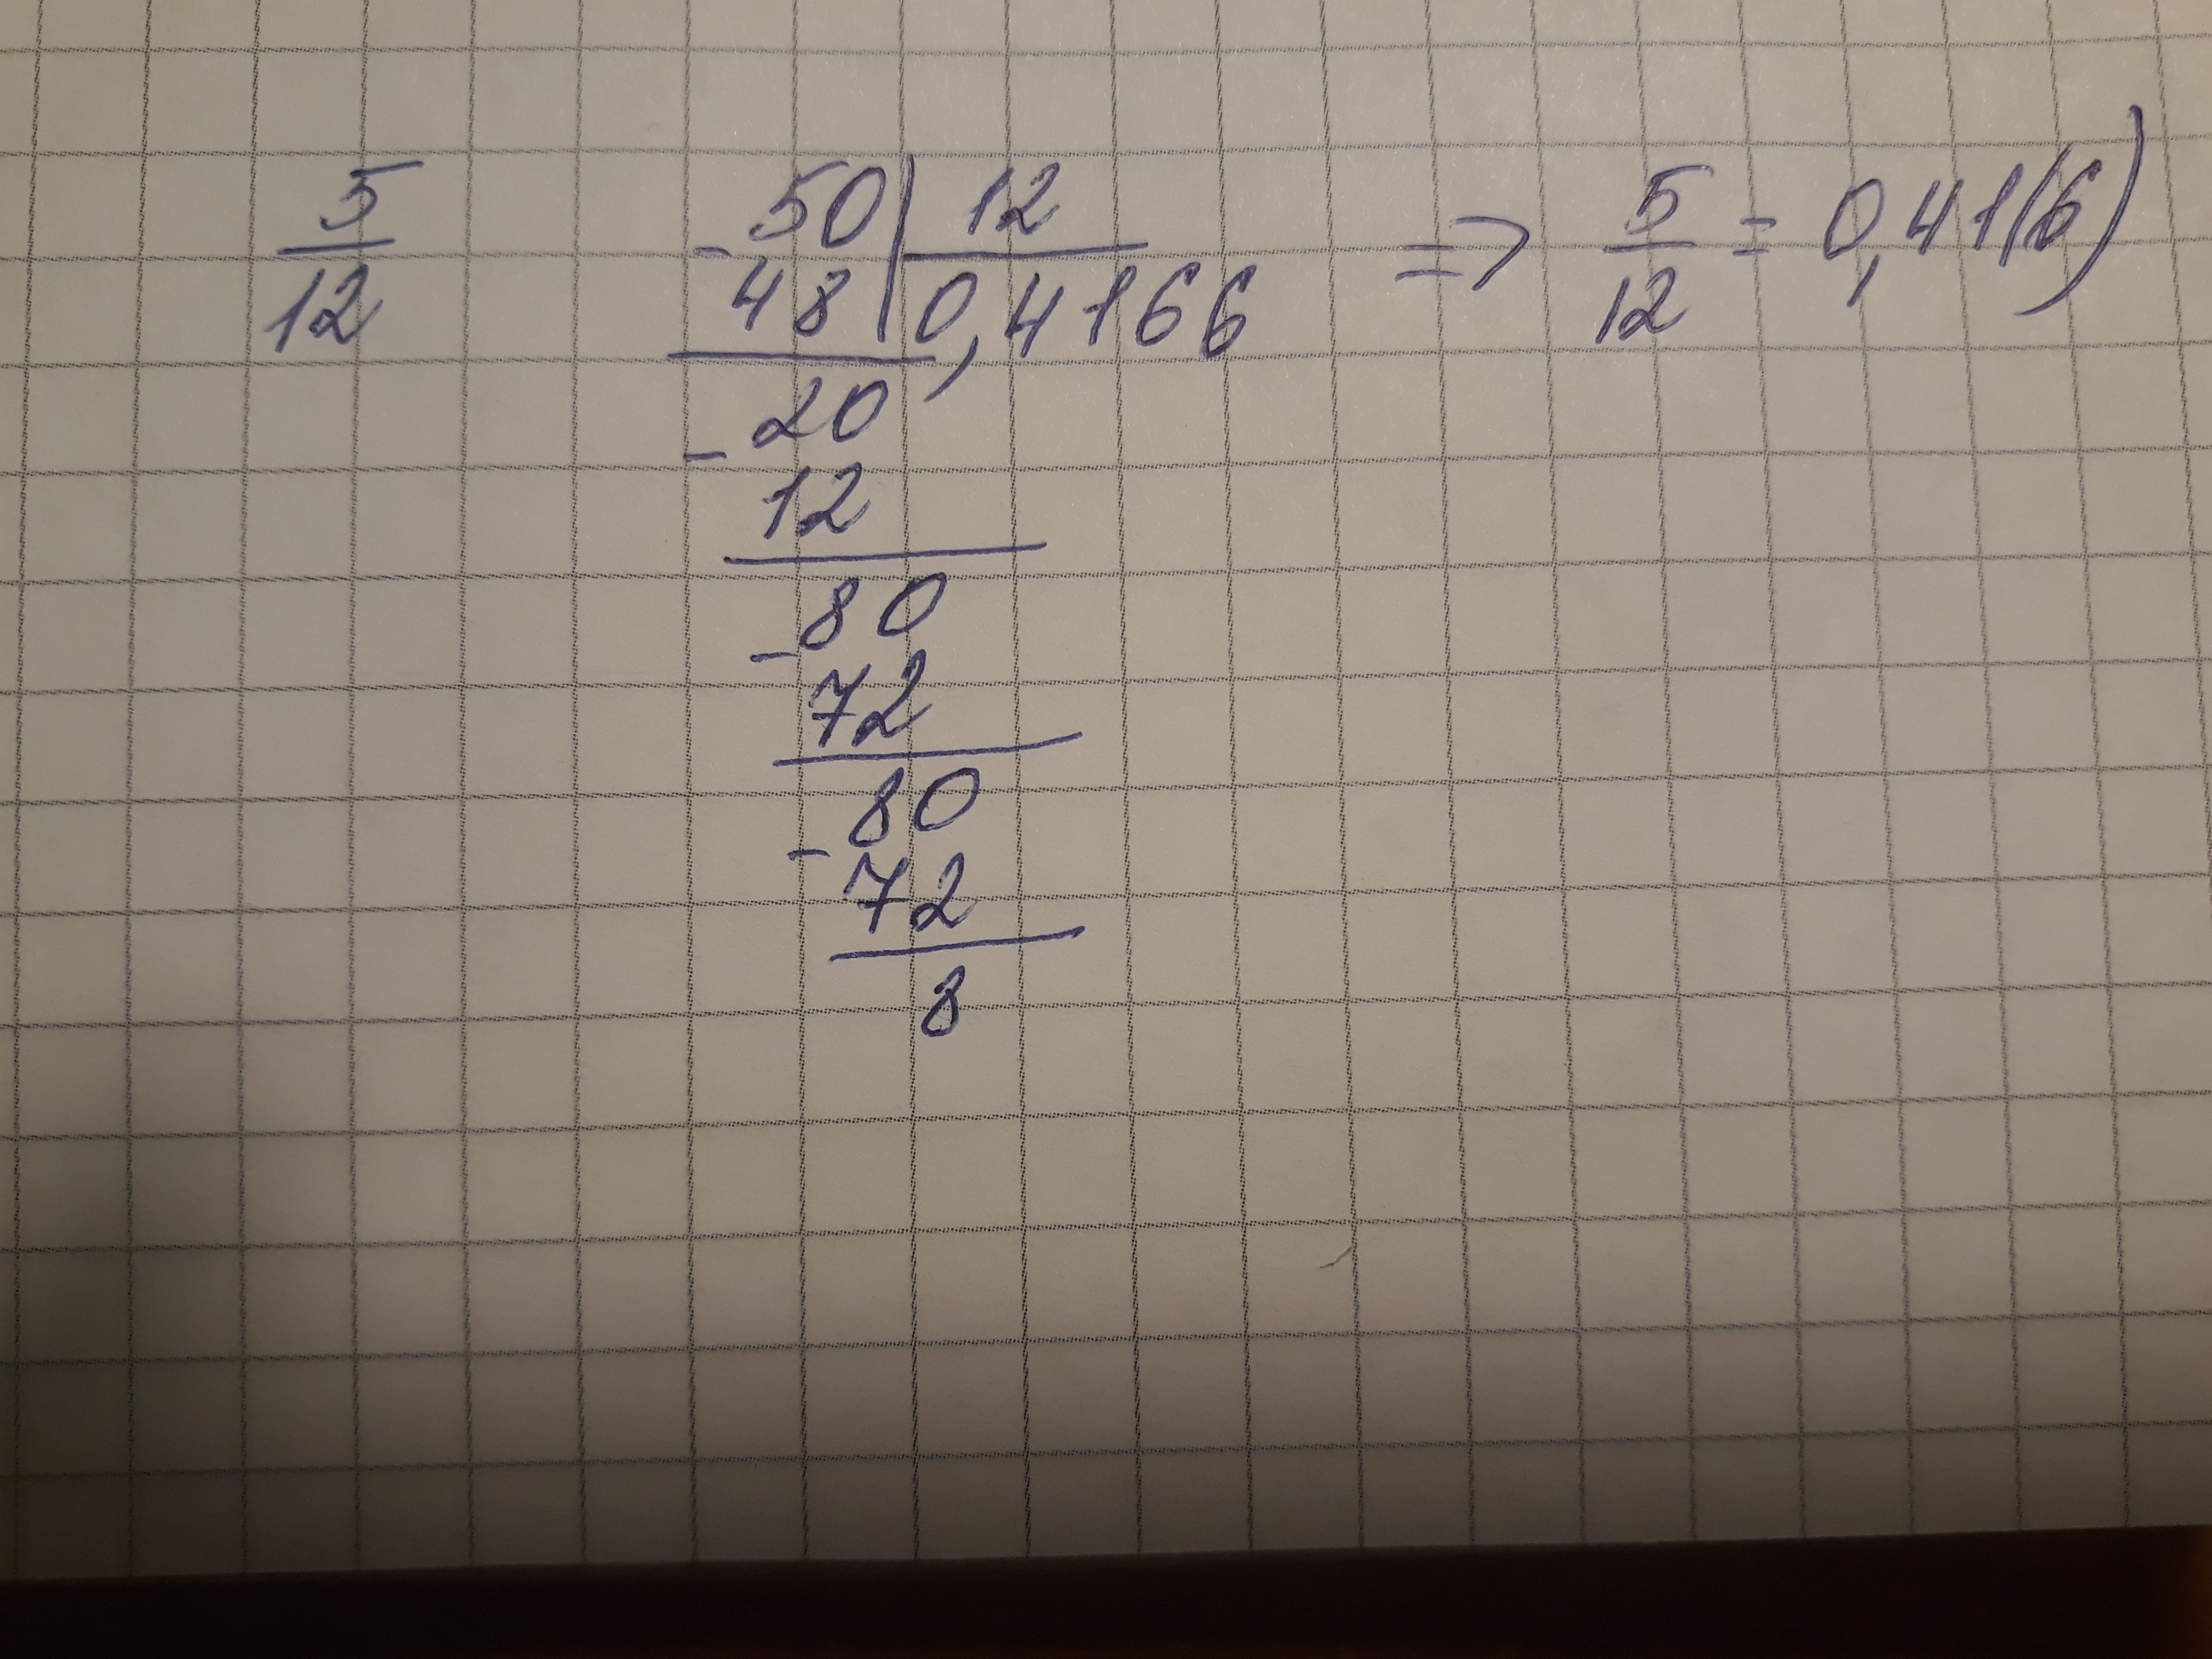 5/12
- 50 | 12
48 | 0,4166
20
- 12
80
- 72
80
- 72
8
=> 5/12 = 0,41(6)